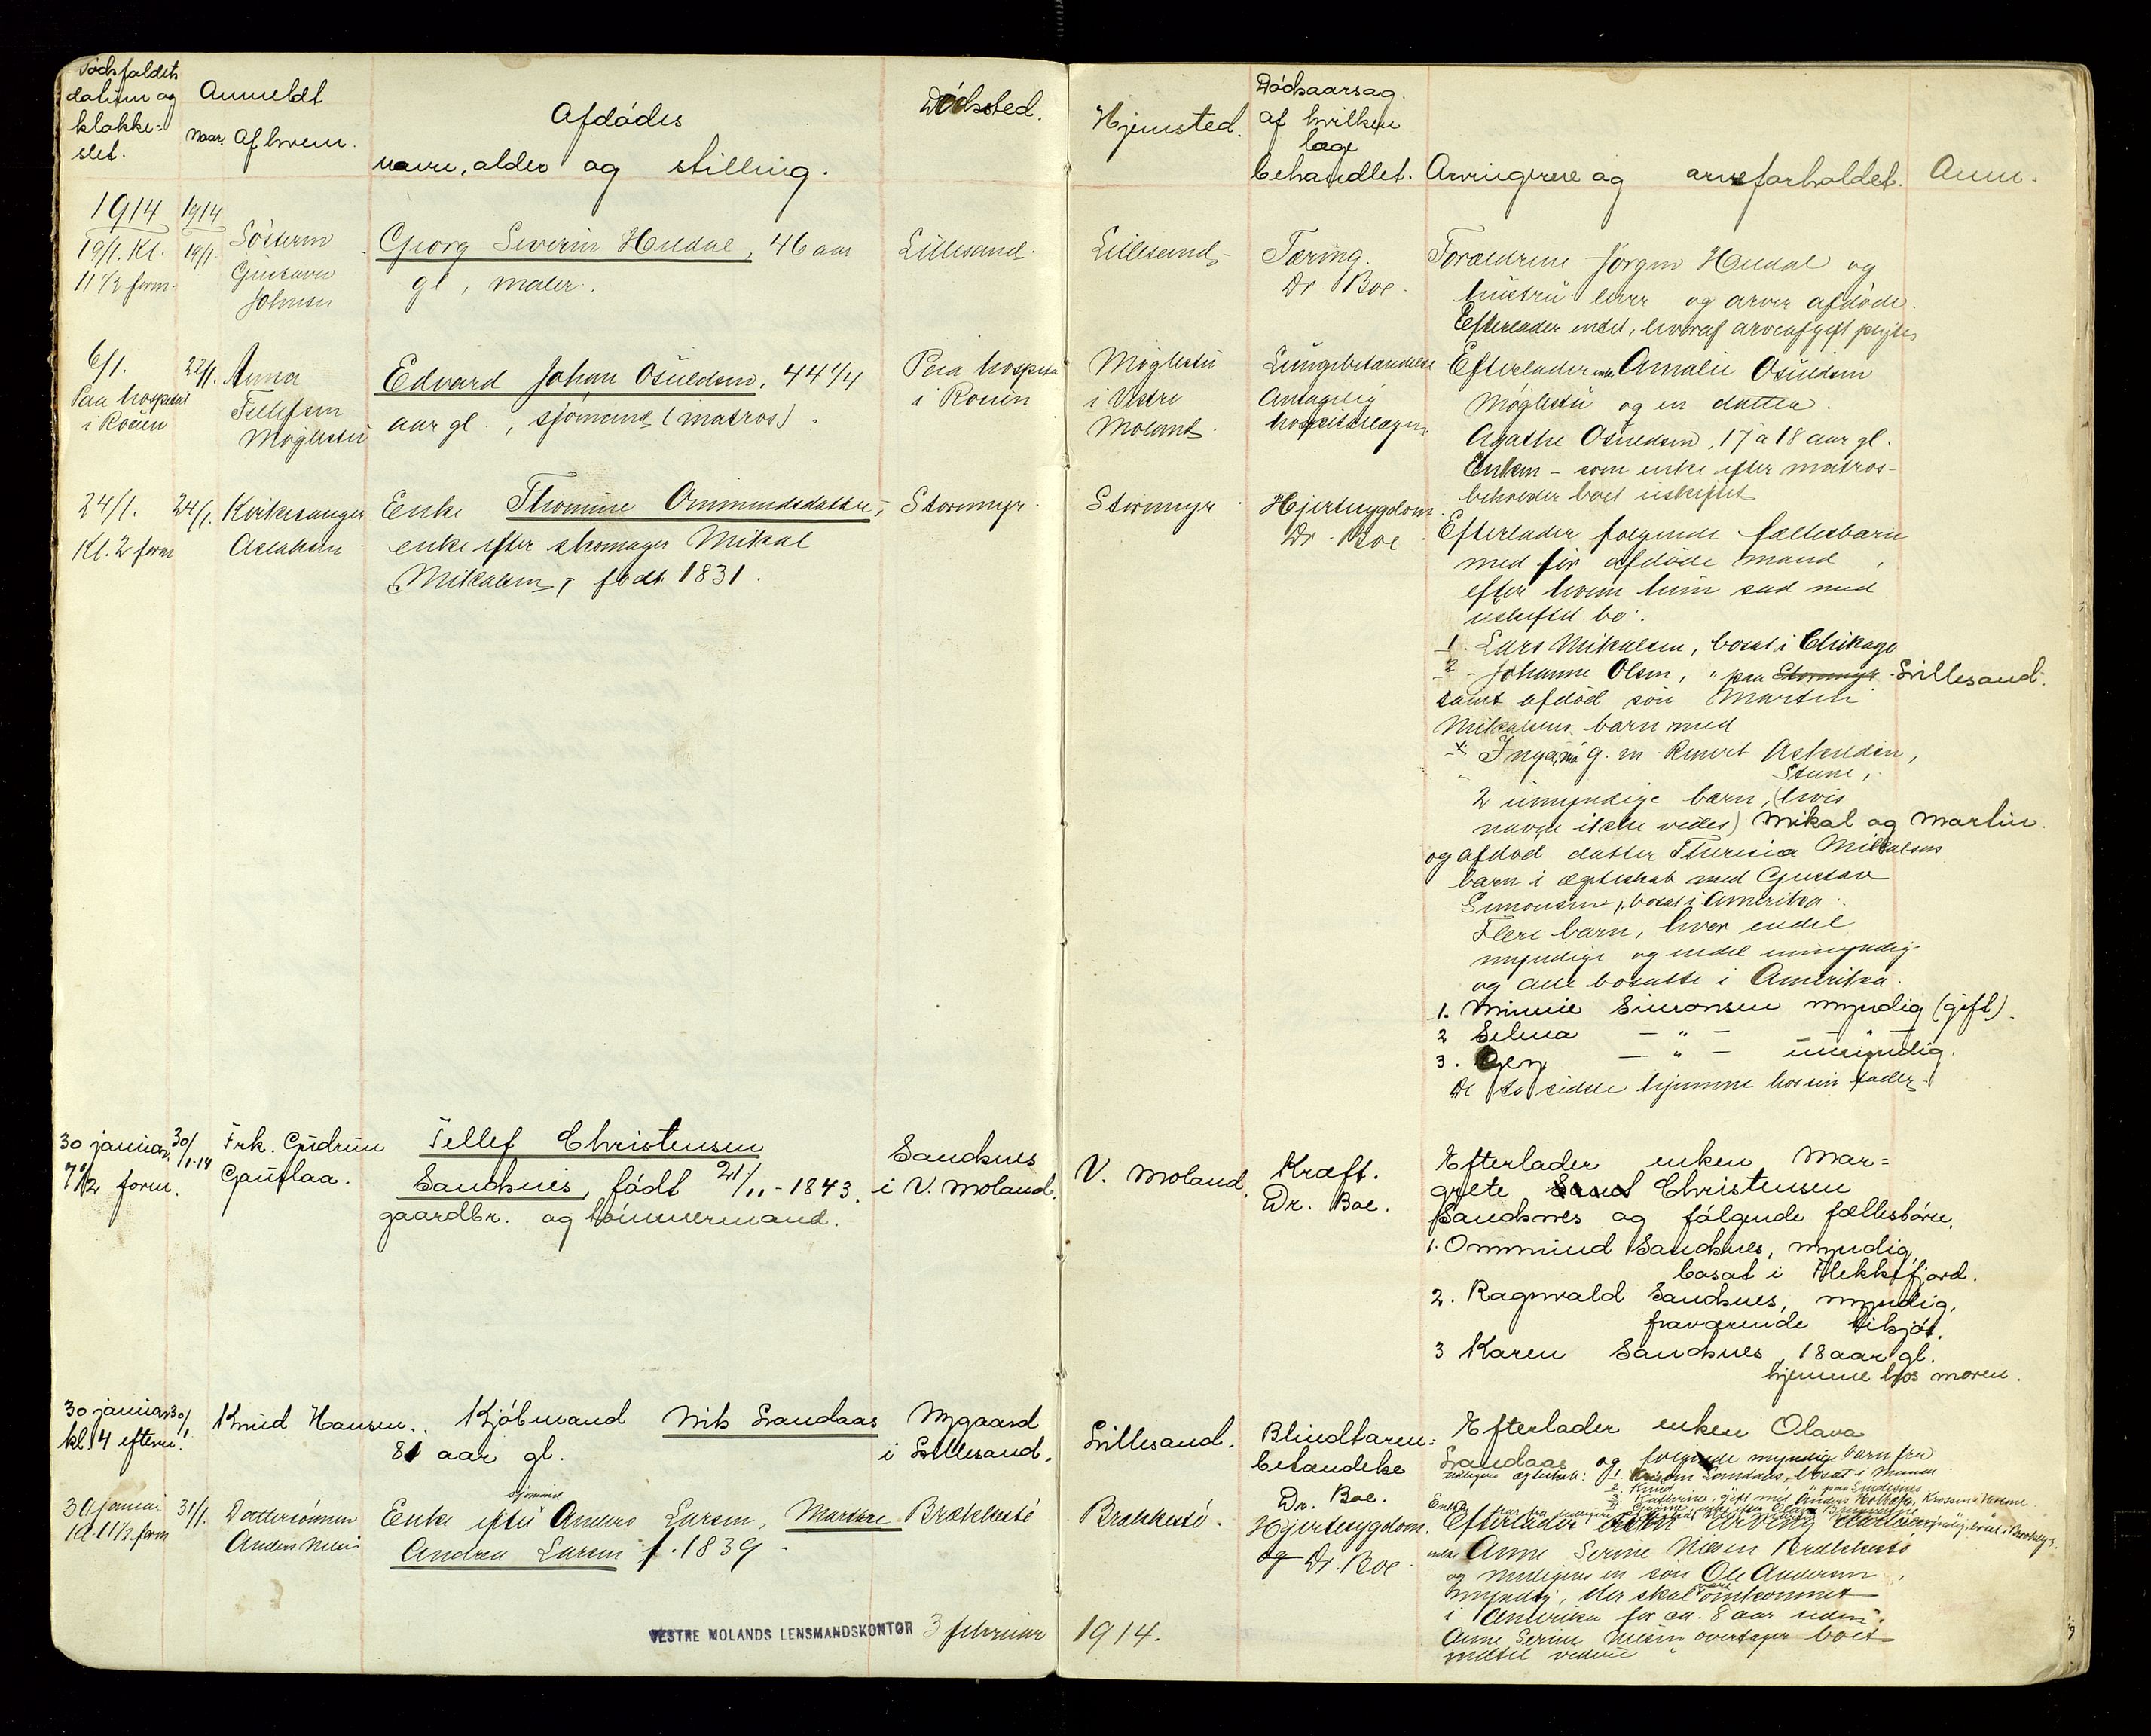 Dödsfaldets
datum og
klokke-
slet.
Anmeldt
Naar. Af hvem.
Afdødes
navn, alder og stilling.
Dødssted.
Hjemsted.
Dødsaarsag.
af hvilken
læge
behandlet.
Arvingerne og arveforholdet.
Anm.
1914
19/1. Kl.
11 1/2 form.
1914
19/1.
Søsteren
Gustava
Johnsen
Georg Severin Heldal, 46 aar
gl, maler.
Lillesand.
Lillesand
Tæring.
Dr Boe.
Forældrene Jørgen Heldal og
hustru lever og arver afdøde.
Efterlader intet, hvoraf arveafgift pligtes
6/1.
Paa hospital
i Rouen
22/1.
Anna
Tellefsen
Møglestu
Edvard Johan Osuldsen, 44 1/4
aar gl., sjømand (matros).
Paa hospital
i Rouen
Møglestu
i Vestre
Moland
Lungebetændelse
Antagelig
hospitalslægen.
Efterlader enke Amalie Osuldsen
Møglestu og en datter.
Agathe Osuldsen, 17 a 18 aar gl.
Enken - som enke efter matros -
beholder boet uskiftet
24/1.
Kl. 2 form
24/1.
Kirkesanger
Aslaksen
Enke Thomine Ommundsdatter,
enke efter skomager Mikal
Mikalsen, født 1831.
Stormyr.
Stormyr
Hjertesygdom.
Dr. Boe
Efterlader følgende fællesbarn
med før afdøde mand,
efter hvem hun sad med
uskiftet bo:
1. Lars Mikalsen, bosat i Chikago
2 - Johanne Olsen, " paa Stormyr Lillesand.
samt afdød søn Martin
Mikalsens barn med
Inga, nu g. m. Reinert Aslaksen,
2 umyndige barn, (hvis
navne ikke vides) Mikal og Martin.
og afdød datter Theresia Mikalsens
barn i ægteskab med Gustav
Simonsen, bosat i Amerika.
Flere barn, hver endel
myndige og endel umyndig
og alle bosatte i Amerika.
1. Minnie Simonsen myndig (gift).
2 Selma - " - - " -
3. Glen - " - umyndig.
De to sidste hjemme hos sin fader
30 januar
7 1/2 form.
30/1-14
Frk. Gudrun
Gauslaa.
Tellef Christensen
Sandnes, født 21/11-1843,
gaardbr. og tømmermand.
Sandnes
i V. Moland.
V. Moland,
Kræft.
Dr. Boe.
Efterlader enken Mar=
grete Christensen
Sandnes og følgende fællesbørn.
1. Ommund Sandnes, myndig,
bosat i Flekkefjord.
2. Ragnvald Sandnes, myndig,
fraværende tilsjøs.
3 Karen Sandnes, 18 aar gl.
hjemme hos moren.
30 januar
kl. 4 efterm.
30/1
Knud Hansen.
Kjøbmand Nils Grandaas
81 aar gl.
Nygaard
i Lillesand.
Lillesand.
Blindtarm=
betændelse
Dr. Boe.
Efterlader enken Olava
Grandaas og følgende myndige barn fra
30 januar
kl. 11 1/2 form
31/1.
Dattersønnen
Anders Nilsen
Enke efter sjømand Anders Larsen, Marthe
Andrea Larsen f. 1839.
Brækkestø
Brækkestø.
Hjertesygdom.
og Dr. Boe.
Efterlader
Anne Serine Nilsen Brækkestø
og muligens en søn Ole Andersen,
myndig, der skal være omkommet
i Amerika for ca. 8 aar siden.
Anne Serine Nilsen overtager boet
VESTRE MOLANDS LENSMANDSKONTOR 3 februar 1914.